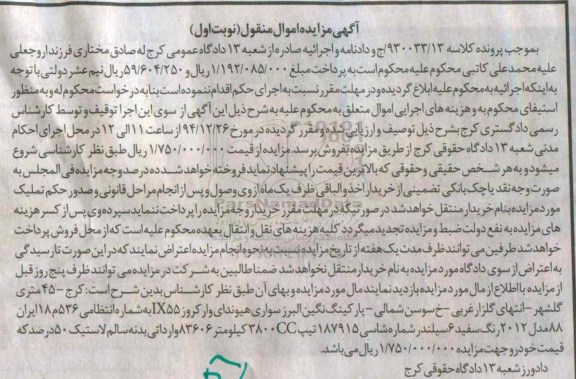 آگهی مزایده اموال منقول (نوبت اول)
بموجب پرونده کلاسه 930033/13/ج و دادنامه و اجرائیه صادره از شعبه 13 دادگاه عمومی کرج له صادق مختاری فرزند اروجعلی
علیه محمد علی کاتبی محکوم علیه محکوم است به پرداخت مبلغ 1/192/085/000 ریال و 59/604/250 ریال نیم عشر دولتی با توجه
به اینکه اجرائیه به محکوم علیه ابلاغ گردیده و در مهلت مقرر نسبت به اجرای حکم اقدام ننموده است بنا به درخواست محکوم له و به منظور
استیفای محکوم به و هزینه های اجرایی اموال متعلق به محکوم علیه به شرح ذیل این آگهی از سوی این اجرا توقیف و توسط کارشناس
رسمی دادگستری کرج بشرح ذیل توصیف و ارزیابی شده و مقرر گردیده در مورخ 94/12/26 از ساعت 11 الی 12 در محل اجرای احکام
مدنی شعبه 13 دادگاه حقوقی کرج از طریق مزایده بفروش برسد. مزایده از قیمت 1/750/000/000 ریال طبق نظر کارشناسی شروع
میشود و به هر شخص حقیقی و حقوقی که بالاترین قیمت را پیشنهاد نماید فروخته خواهد شد ده درصد وجه مزایده فی المجلس به
صورت وجه نقد یا چک بانکی تضمینی از خریدار اخذ و الباقی ظرف یک ماه از وی وصول و پس از انجام مراحل قانونی و صدور حکم تملیک
مورد مزایده بنام خریدار منتقل خواهد شد در صورتیکه در مهلت مقرر خریدار وجه مزایده را پرداخت ننماید سپرده وی پس از کسر هزینه
های مزایده به نفع دولت ضبط و مزایده تجدید میگردد کلیه هزینه های نقل و انتقال بعهده محکوم علیه است که از محل فروش پرداخت
خواهد شد طرفین می توانند ظرف مدت یک هفته از تاریخ مزایده نسبت به نحوه انجام مزایده اعتراض نمایند که در این صورت تا رسیدگی
به اعتراض از سوی دادگاه مورد مزایده به نام خریدار منتقل نخواهد شد ضمنا طالبین به شرکت در مزایده می توانند ظرف پنج روز قبل
از مزایده با اطلاع از مال مورد مزایده بازدید نمایند مال مورد مزایده و بهای آن طبق نظر کارشناس بدین شرح است: کرج - 45 متری
گلشهر - انتهای گلزار غربی - خ سوسن شمالی - پارکینگ نگین البرز سواری هیوندای وارکروز IX55 به شماره انتظامی 536م18 ایران
88 مدل 2012 رنگ سفید 6 سیلندر شماره شاسی 187915 تیپ 3800CC کیلومتر 83606 وارداتی بدنه سالم لاستیک 50 درصد که
قیمت خودرو جهت مزایده 1/750/000/000 ریال می باشد.
دادورز شعبه 13 دادگاه حقوقی کرج